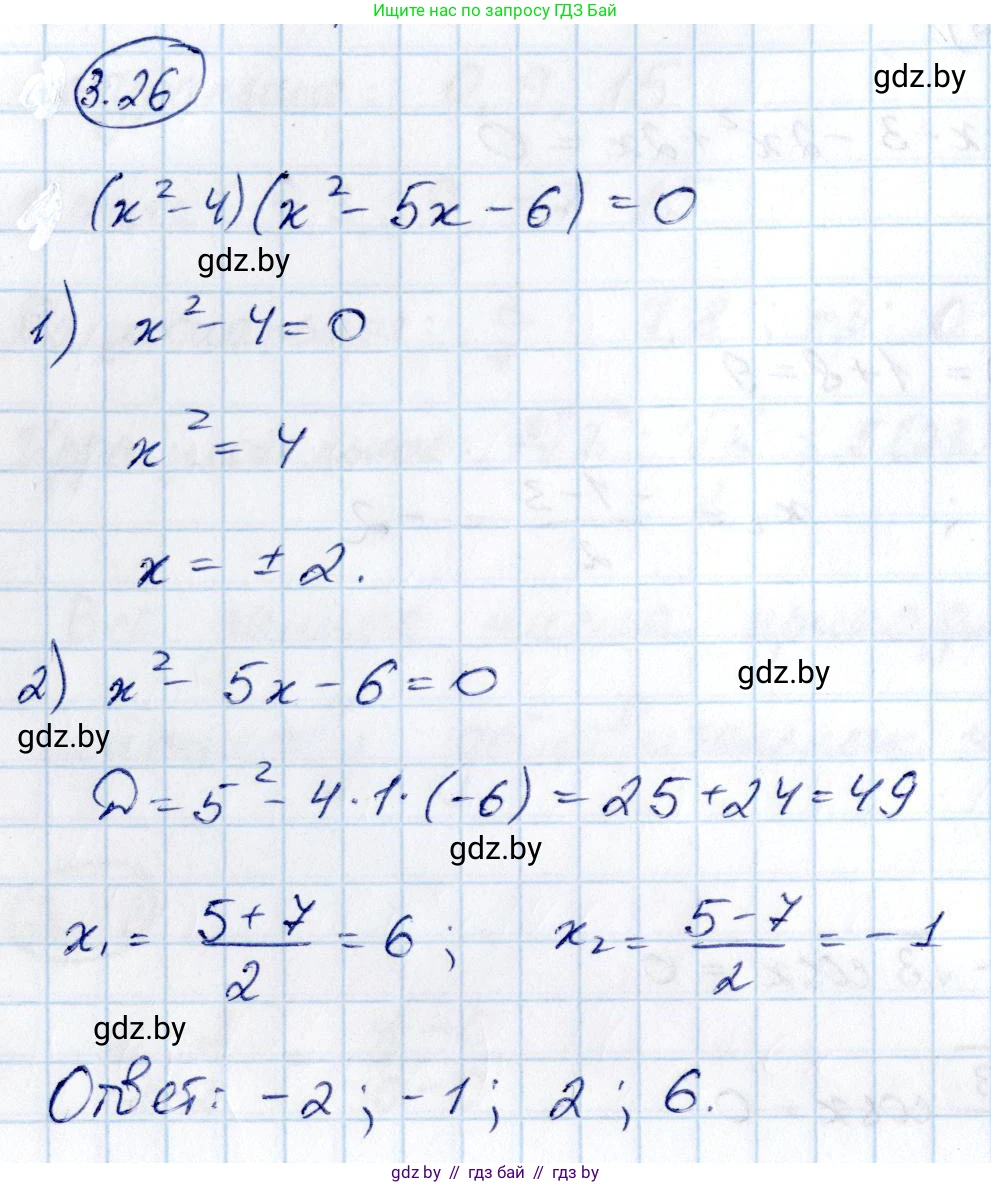 Ищите нас по запросу ГДЗ Бай
3.26
gdz.by
(x² - 4)(x² - 5x - 6) = 0
gdz.by
1) x² - 4 = 0
x² = 4
x = ± 2.
2) x² - 5x - 6 = 0
gdz.by
gdz.by
D = 5² - 4 · 1 · (-6) = 25 + 24 = 49
gdz.by
x₁ = (5 + 7)/2 = 6 ; x₂ = (5 - 7)/2 = - 1
gdz.by
Ответ: - 2 ; - 1 ; 2 ; 6.
gdz.by // гдз бай // гдз by